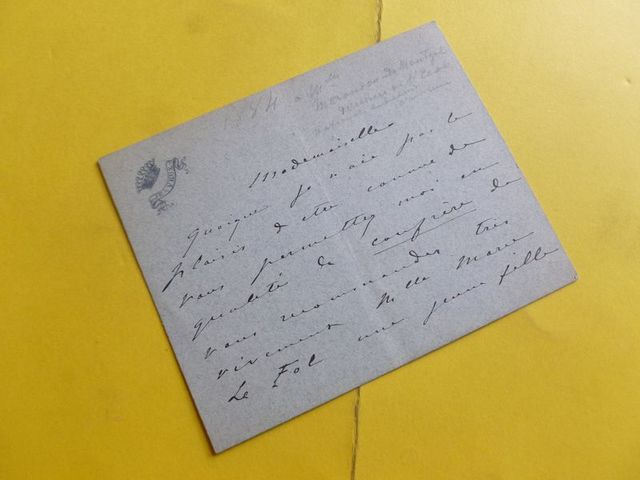 1884 a Mlle
Mademoiselle
quoique je n'aie pas le
plaisir d'etre connue de
vous permettez moi en
qualité de confrère de
vous recommander très
vivement Mlle Marie
Le Fol une jeune fille